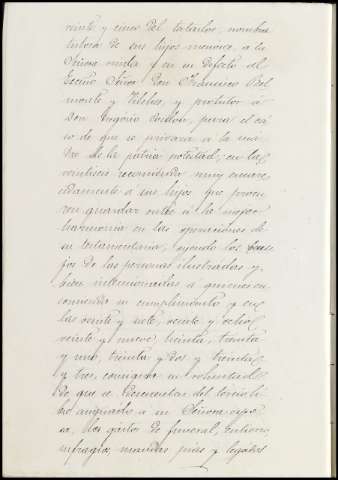 veinte y cinco del tratado, nombra
tutora de sus hijos menores, a la
Señora viuda y en su defecto al
Excmo Señor Don Francisco Bel
monte y Vilches, y protutor á
Don Eugenio Cordón, para el ca
so de que se privara a la ma
dre de la patria potestad; en las
veintiseis recomendó muy encare
cidamente a sus hijos que procu
ren guardar entre sí la mayor
harmonia en las operaciones de
su testamentaria, oyendo los conse
jos de las personas ilustradas y
bien intencionadas a quienes en
comienda su cumplimiento y en
las veinte y siete, veinte y ocho,
veinte y nueve, treinta, treinta
y una, treinta y dos y treinta
y tres, consigna su voluntad
de que se descuenten del tercio li
bre asignado a su Señora espo
sa, los gastos de funeral, entierro,
sufragios, mandas pias y legados